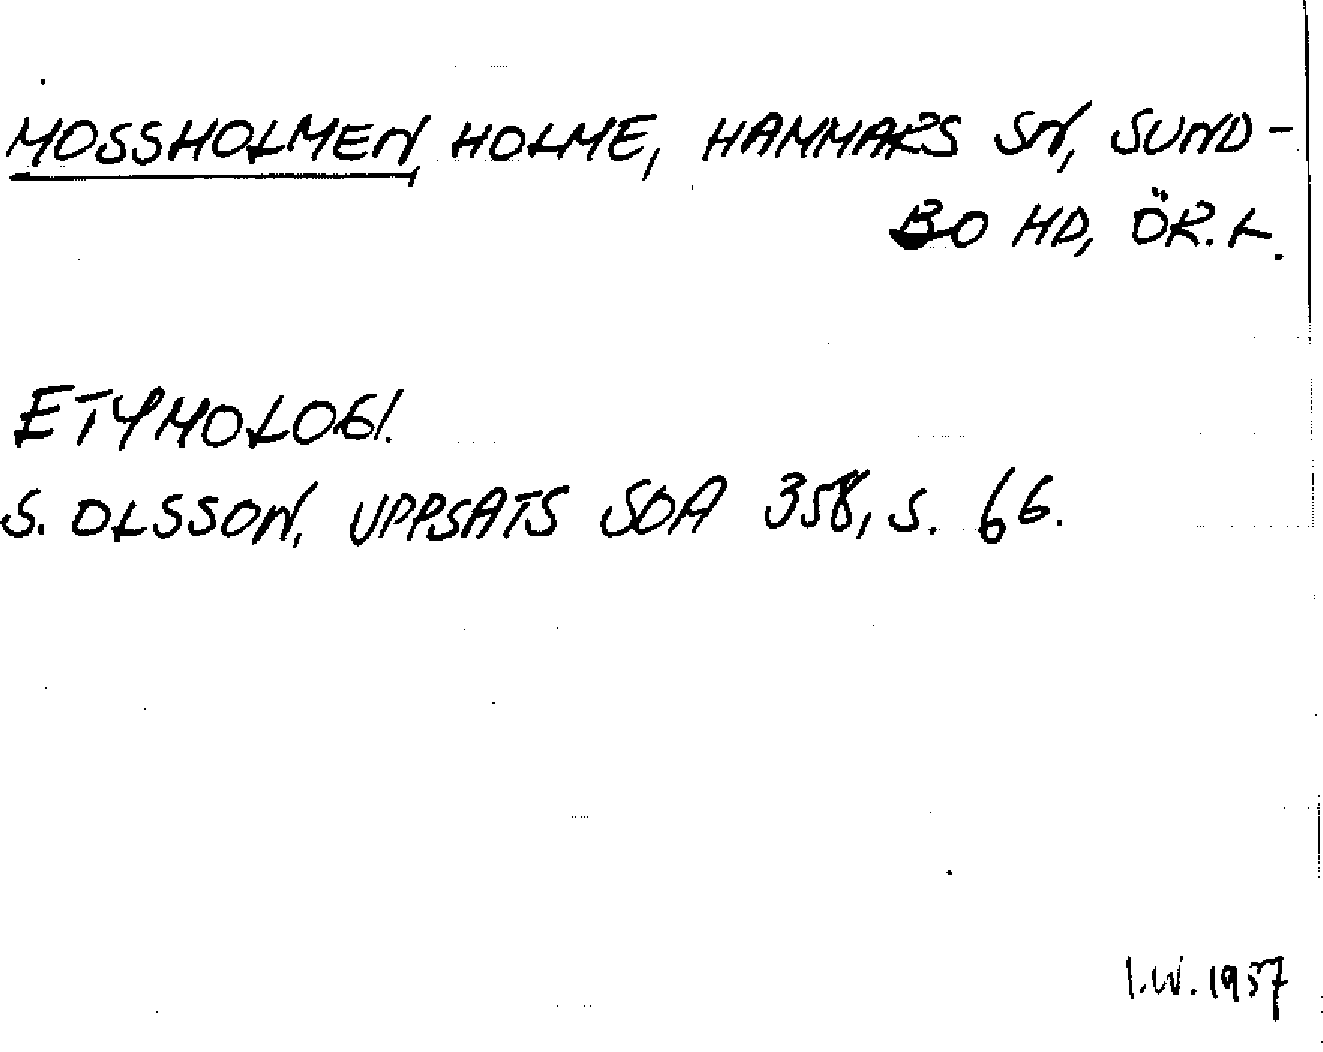 MOSSHOLMEN, HOLME, HAMMARS SN, SUND-
BO HD, ÖR. L.
ETYMOLOGI.
S. OLSSON, UPPSATS SOA 358, S. 66.
I.W. 1957